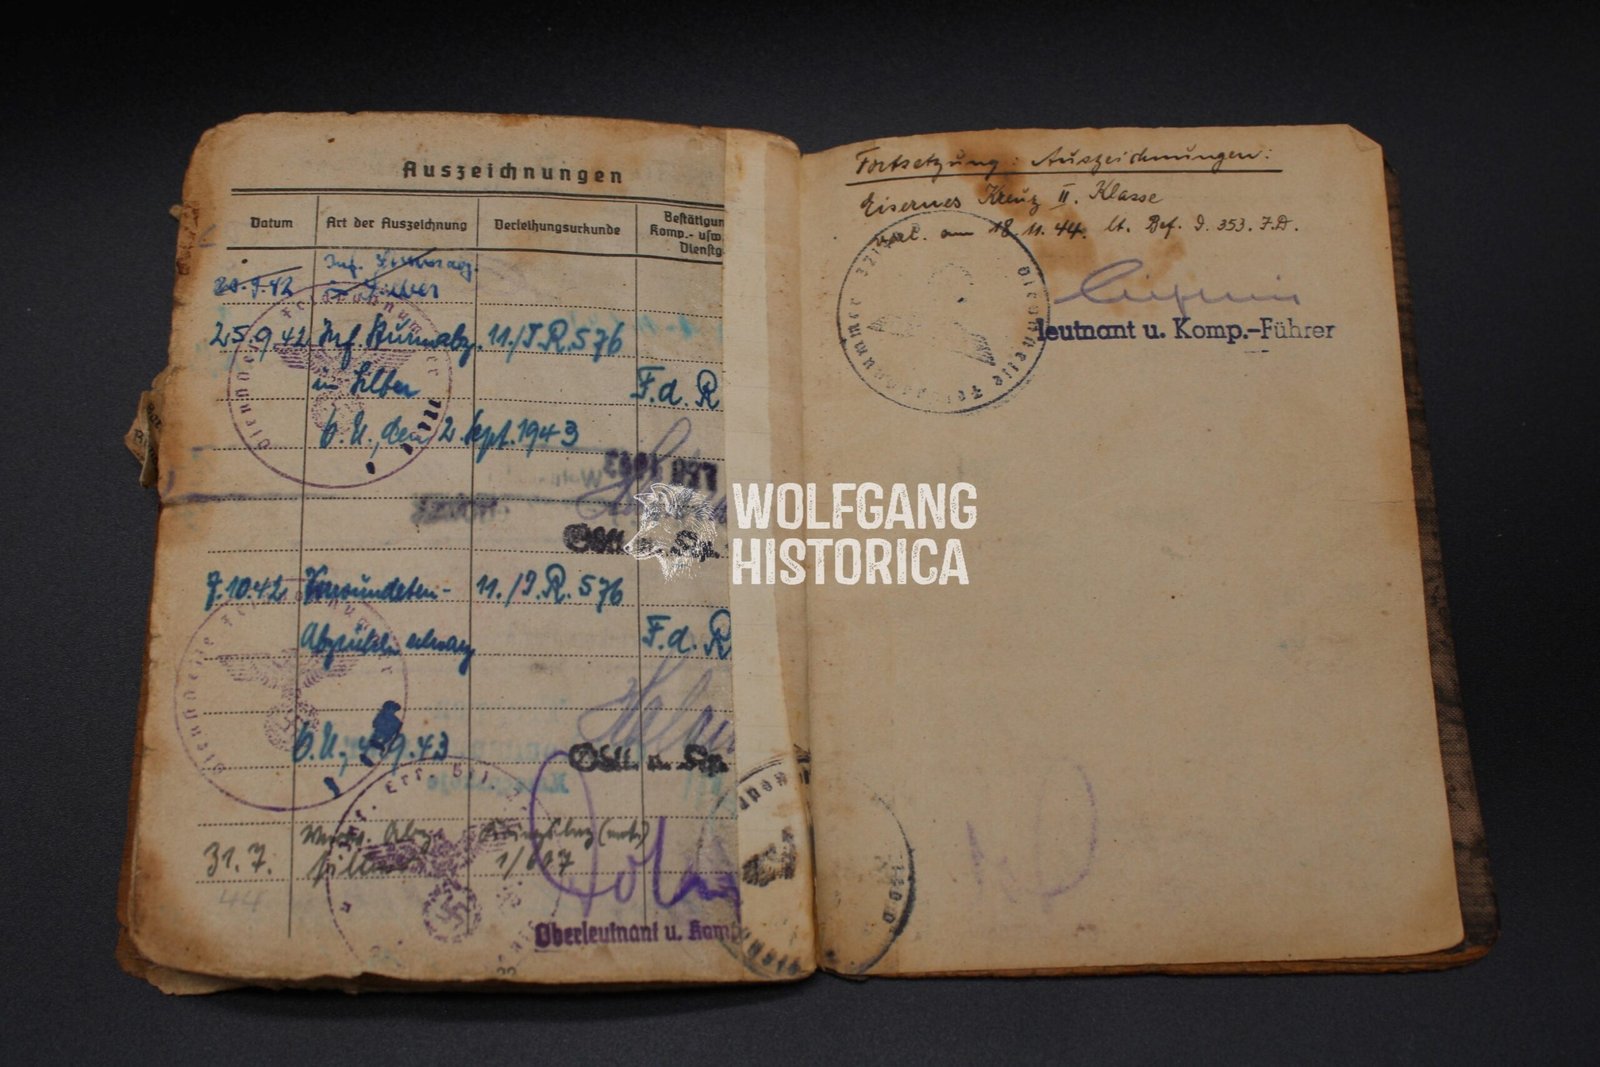 Auszeichnungen
Datum
Art der Auszeichnung
Verleihungsurkunde
Bestätigun
Komp.- usw.
Dienstg
Inf.
in Silber
25.9.42 Inf. Sturmabz. 11./I.R. 576
in Silber
F. d. R
O.U., den 2. Sept. 1943
Oblt. u. Kp.
7.10.42 Verwundeten- 11./I.R. 576
Abzeichen schwarz
F. d. R
O.U., 9.43
Oblt. u. Kp.
Verw. Abz.
31.7. silber
44
Oberleutnant u. Komp
Dienststelle Feldpostnummer
Fortsetzung: Auszeichnungen:
Eisernes Kreuz II. Klasse
verl. am 18.11.44. lt. Bef. D. 353. I.D.
Dienststelle Feldpostnummer
leutnant u. Komp.-Führer
WOLFGANG
HISTORICA